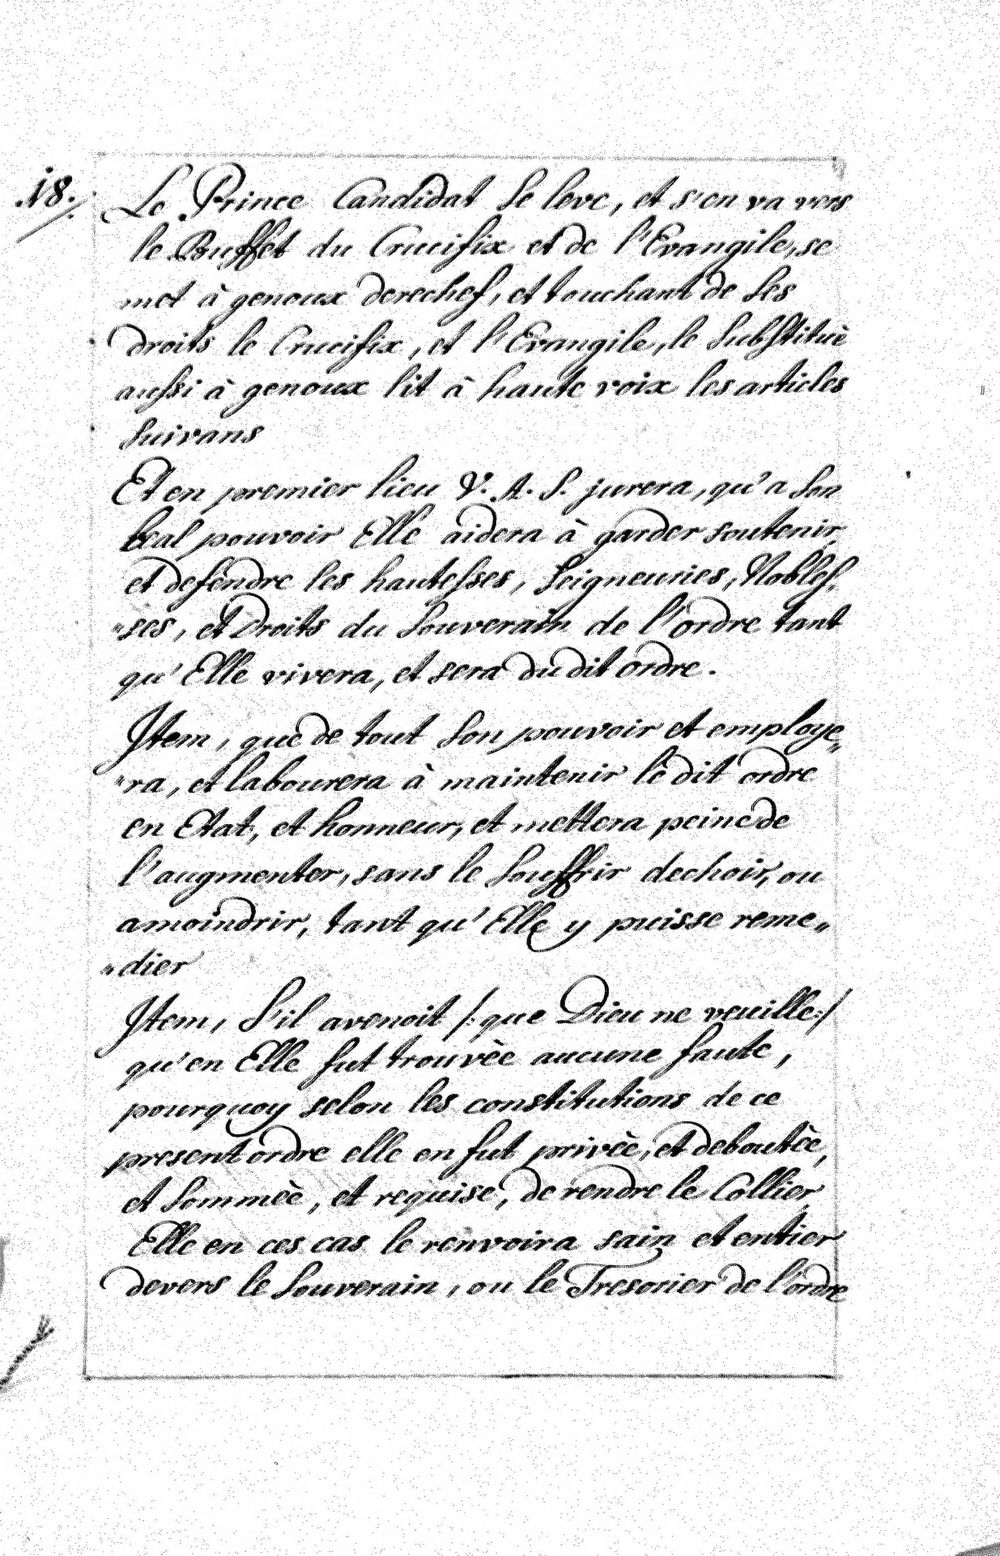 18.
Le Prince Candidat se leve, et s'en va vers
le Buffet du Crucifix et de l'Evangile, se
met à genoux derechef, et touchant de ses
droits le Crucifix, et l'Evangile, le substituè
aussi à genoux lit à haute voix les articles
suivans
Et en premier lieu V. A. S. jurera, qu'a son
leal pouvoir Elle aidera à garder soutenir,
et defendre les hautesses, Seigneuries, Nobles„
„ses, et Droits du Souverain de l'ordre tant
qu'Elle vivera, et sera du dit ordre.
Item, que de tout son pouvoir et employe„
„ra, et labourera à maintenir le dit ordre
en Etat, et honneur, et mettera peine de
l'augmenter, sans le souffrir dechoir, ou
amoindrir, tant qu'Elle y puisse reme„
„dier
Item, S'il avenoit /: que Dieu ne veuille :/
qu'en Elle fut trouvèe aucune faute,
pourquoy selon les constitutions de ce
present ordre elle en fut privèe, et deboutèe,
et sommèe, et requise, de rendre le Collier
Elle en ces cas le renvoira sain et entier
devers le Souverain, ou le Tresorier de l'ordre